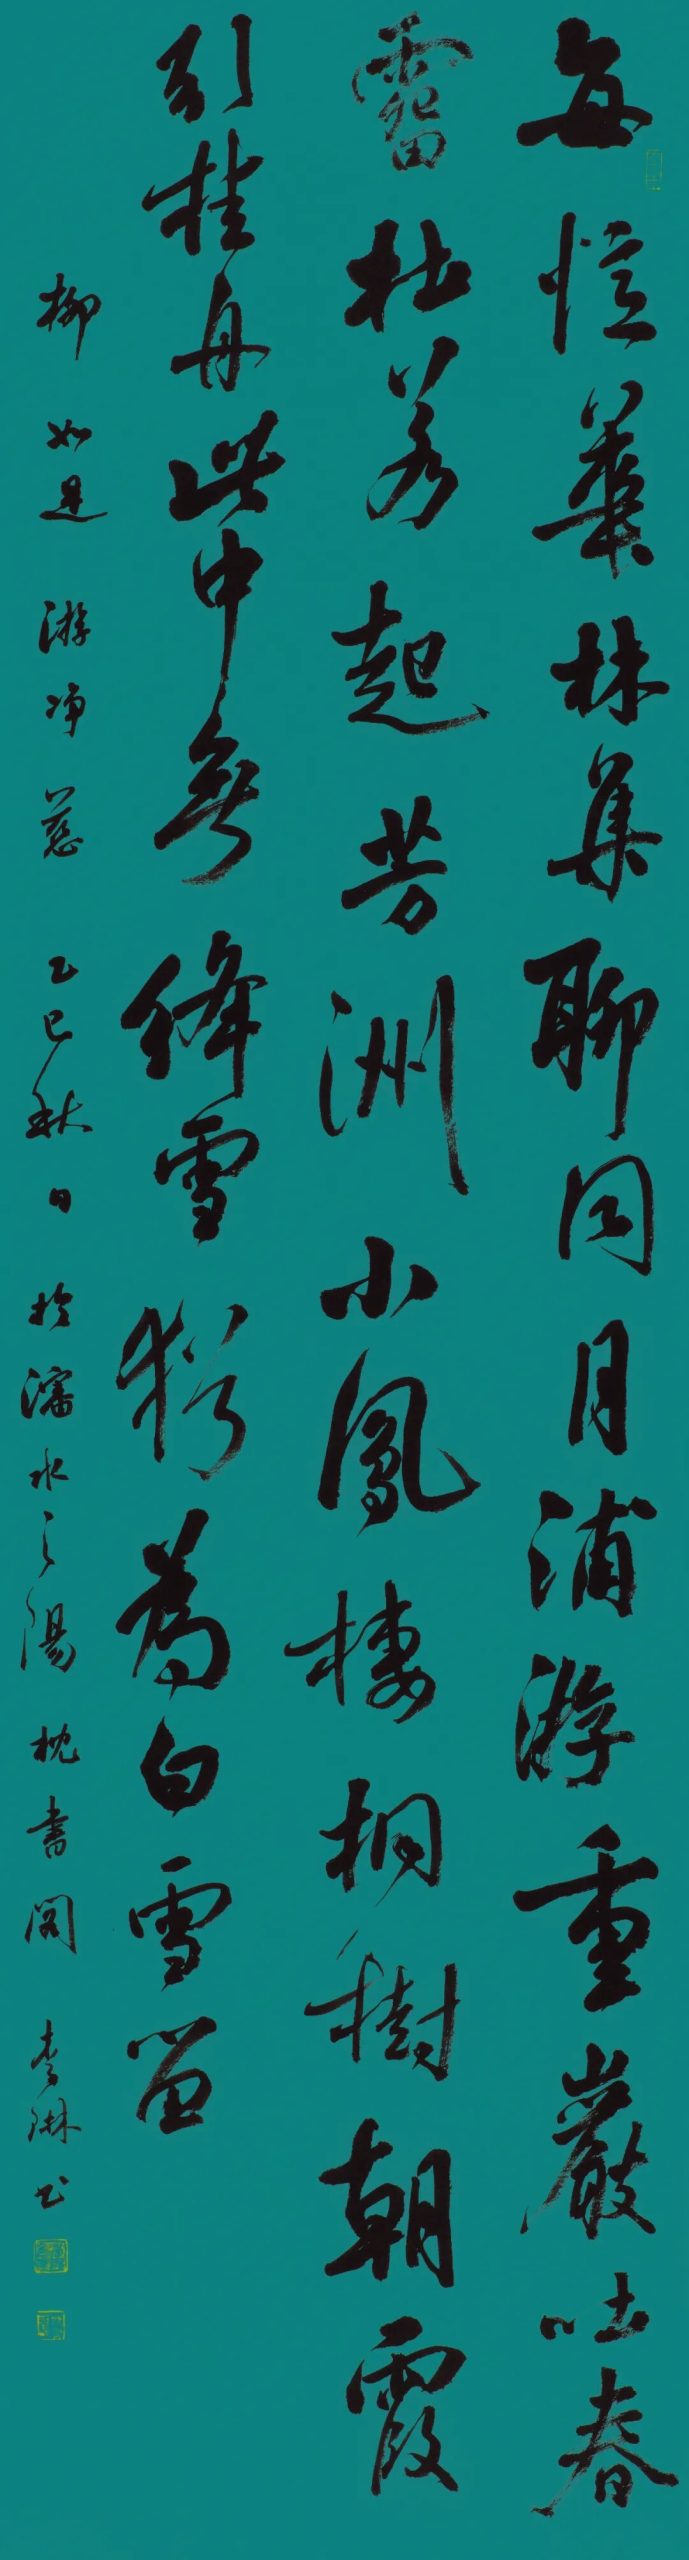 每憶華林集聊同月浦游重巖吐春
霤杜若起芳洲小鳳棲桐樹朝霞
引桂舟此中無絳雪猶為白雪留
柳如是 游净慈 乙巳秋日於瀋水之陽枕書閣 李琳书